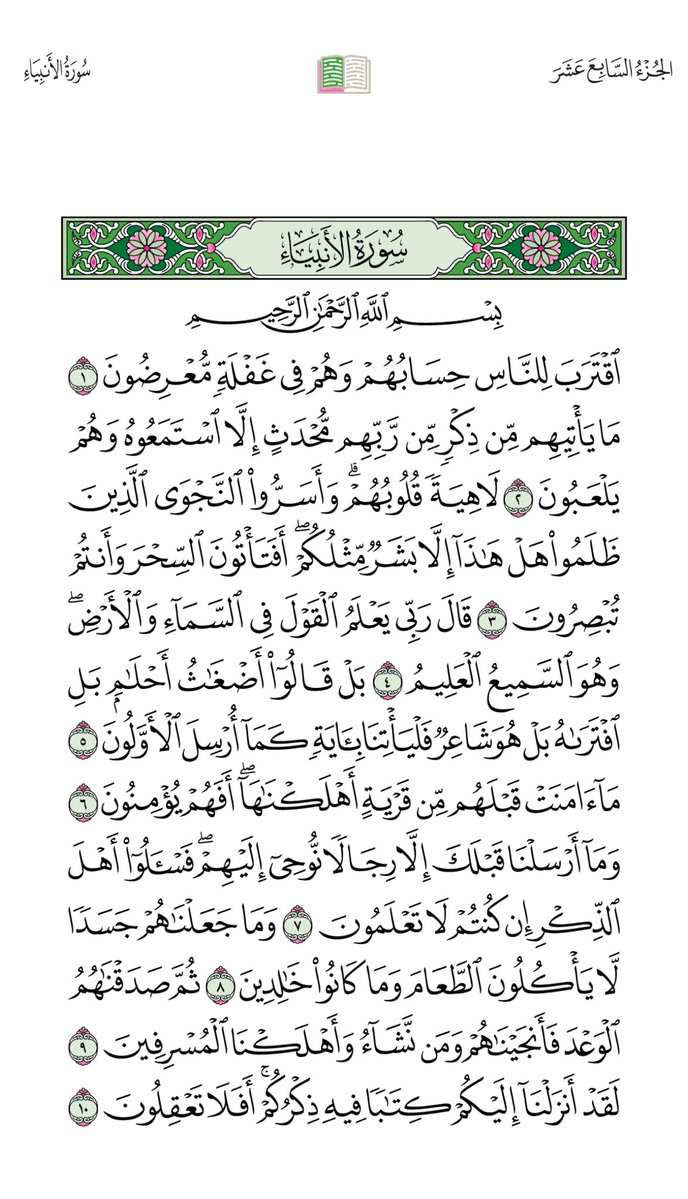 الجُزْءُ السَّابِعَ عَشَرَ
سُورَةُ الأَنبِيَاءِ
سُورَةُ الأَنبِيَاءِ
بِسۡمِ ٱللَّهِ ٱلرَّحۡمَٰنِ ٱلرَّحِيمِ
ٱقۡتَرَبَ لِلنَّاسِ حِسَابُهُمۡ وَهُمۡ فِي غَفۡلَةٖ مُّعۡرِضُونَ ١
مَا يَأۡتِيهِم مِّن ذِكۡرٖ مِّن رَّبِّهِم مُّحۡدَثٍ إِلَّا ٱسۡتَمَعُوهُ وَهُمۡ
يَلۡعَبُونَ ٢ لَاهِيَةٗ قُلُوبُهُمۡۗ وَأَسَرُّواْ ٱلنَّجۡوَى ٱلَّذِينَ
ظَلَمُواْ هَلۡ هَٰذَآ إِلَّا بَشَرٞ مِّثۡلُكُمۡۖ أَفَتَأۡتُونَ ٱلسِّحۡرَ وَأَنتُمۡ
تُبۡصِرُونَ ٣ قَالَ رَبِّي يَعۡلَمُ ٱلۡقَوۡلَ فِي ٱلسَّمَآءِ وَٱلۡأَرۡضِۖ
وَهُوَ ٱلسَّمِيعُ ٱلۡعَلِيمُ ٤ بَلۡ قَالُوٓاْ أَضۡغَٰثُ أَحۡلَٰمِۭ بَلِ
ٱفۡتَرَىٰهُ بَلۡ هُوَ شَاعِرٞ فَلۡيَأۡتِنَا بِـَٔايَةٖ كَمَآ أُرۡسِلَ ٱلۡأَوَّلُونَ ٥
مَآ ءَامَنَتۡ قَبۡلَهُم مِّن قَرۡيَةٍ أَهۡلَكۡنَٰهَآۖ أَفَهُمۡ يُؤۡمِنُونَ ٦
وَمَآ أَرۡسَلۡنَا قَبۡلَكَ إِلَّا رِجَالٗا نُّوحِيٓ إِلَيۡهِمۡۖ فَسۡـَٔلُوٓاْ أَهۡلَ
ٱلذِّكۡرِ إِن كُنتُمۡ لَا تَعۡلَمُونَ ٧ وَمَا جَعَلۡنَٰهُمۡ جَسَدٗا
لَّا يَأۡكُلُونَ ٱلطَّعَامَ وَمَا كَانُواْ خَٰلِدِينَ ٨ ثُمَّ صَدَقۡنَٰهُمُ
ٱلۡوَعۡدَ فَأَنجَيۡنَٰهُمۡ وَمَن نَّشَآءُ وَأَهۡلَكۡنَا ٱلۡمُسۡرِفِينَ ٩
لَقَدۡ أَنزَلۡنَآ إِلَيۡكُمۡ كِتَٰبٗا فِيهِ ذِكۡرُكُمۡۚ أَفَلَا تَعۡقِلُونَ ١٠